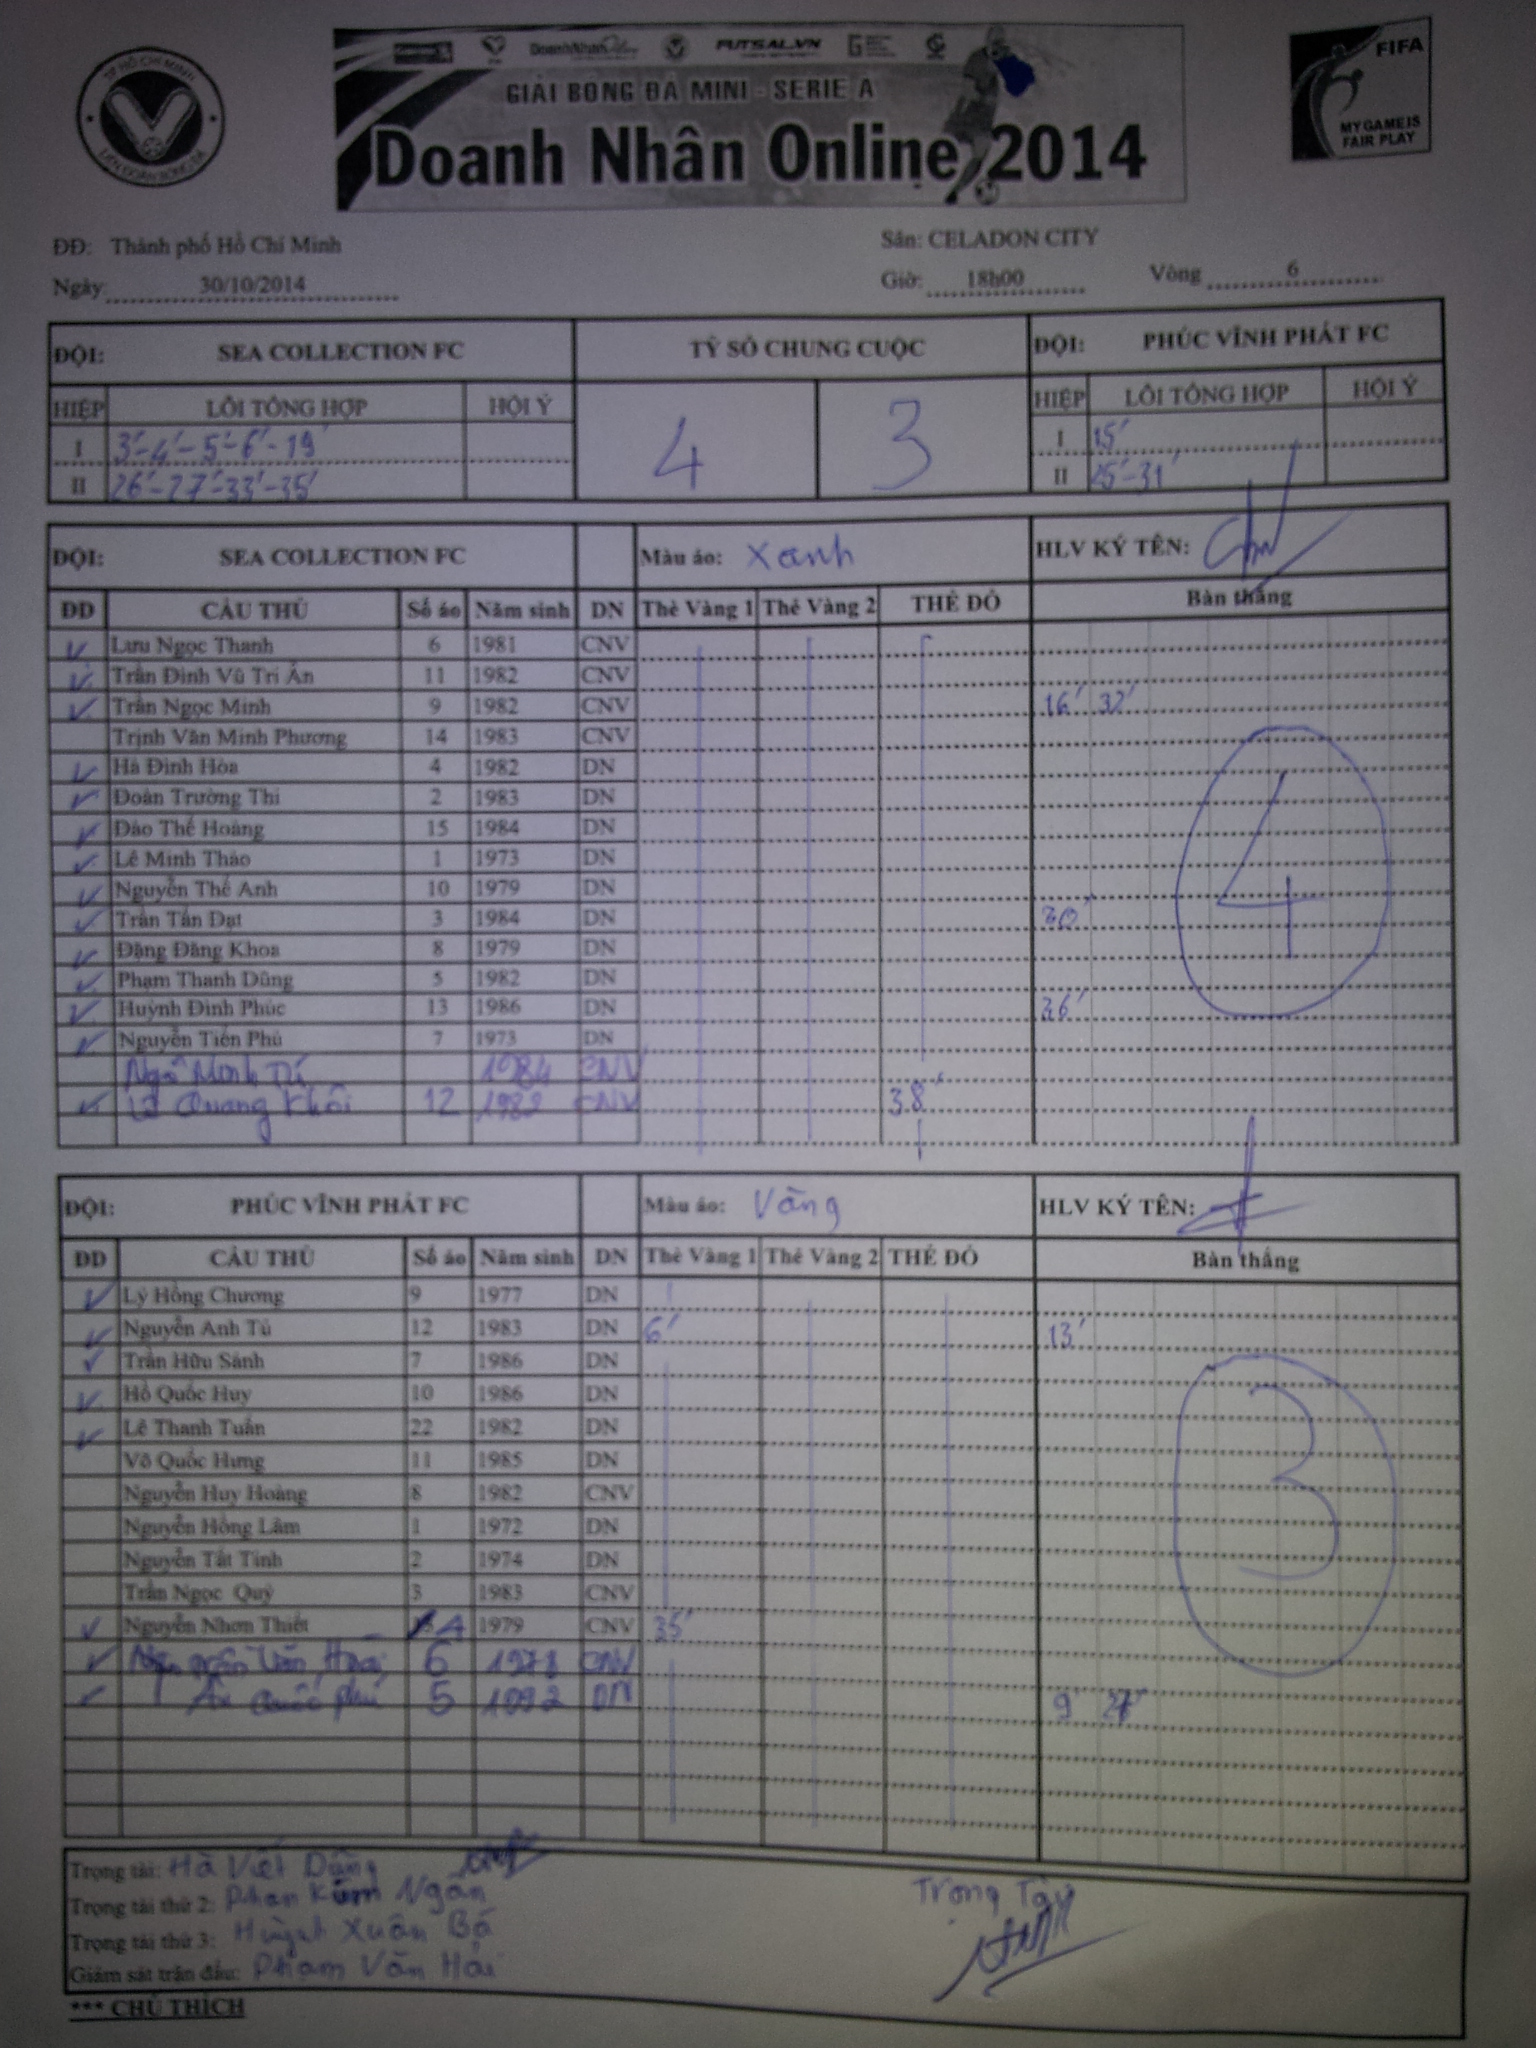 TP HỒ CHÍ MINH
LIÊN ĐOÀN BÓNG ĐÁ
DoanhNhanOnline FUTSAL.VN
GIẢI BÓNG ĐÁ MINI - SERIE A
Doanh Nhân Online 2014
FIFA
MY GAME IS
FAIR PLAY
ĐĐ: Thành phố Hồ Chí Minh Sân: CELADON CITY
Ngày: 30/10/2014 Giờ: 18h00 Vòng 6
ĐỘI: SEA COLLECTION FC TỶ SỐ CHUNG CUỘC ĐỘI: PHÚC VĨNH PHÁT FC
HIỆP LỖI TỔNG HỢP HỘI Ý 4 3 HIỆP LỖI TỔNG HỢP HỘI Ý
I 3'-4'-5'-6'-19' I 15'
II 26'-27'-33'-35' II 25'-31'
ĐỘI: SEA COLLECTION FC Màu áo: Xanh HLV KÝ TÊN:
ĐD CẦU THỦ Số áo Năm sinh DN Thẻ Vàng 1 Thẻ Vàng 2 THẺ ĐỎ Bàn thắng
Lưu Ngọc Thanh 6 1981 CNV
Trần Đình Vũ Trí Ân 11 1982 CNV
Trần Ngọc Minh 9 1982 CNV 16' 32'
Trịnh Văn Minh Phương 14 1983 CNV
Hà Đình Hòa 4 1982 DN
Đoàn Trường Thi 2 1983 DN
Đào Thế Hoàng 15 1984 DN
Lê Minh Thảo 1 1973 DN
Nguyễn Thế Anh 10 1979 DN
Trần Tấn Đạt 3 1984 DN 30'
Đặng Đăng Khoa 8 1979 DN
Phạm Thanh Dũng 5 1982 DN
Huỳnh Đình Phúc 13 1986 DN 36'
Nguyễn Tiến Phú 7 1973 DN
4
Ngô Minh Trí 1984 CNV
Lê Quang Khôi 12 1982 CNV 38'
ĐỘI: PHÚC VĨNH PHÁT FC Màu áo: Vàng HLV KÝ TÊN:
ĐD CẦU THỦ Số áo Năm sinh DN Thẻ Vàng 1 Thẻ Vàng 2 THẺ ĐỎ Bàn thắng
Lý Hồng Chương 9 1977 DN
Nguyễn Anh Tú 12 1983 DN 6' 13'
Trần Hữu Sánh 7 1986 DN
Hồ Quốc Huy 10 1986 DN
Lê Thanh Tuấn 22 1982 DN
Võ Quốc Hưng 11 1985 DN
Nguyễn Huy Hoàng 8 1982 CNV
3
Nguyễn Hồng Lâm 1 1972 DN
Nguyễn Tất Tính 2 1974 DN
Trần Ngọc Quý 3 1983 CNV
Nguyễn Nhơn Thiết 4 1979 CNV 35'
Văn 6 CNV
Quốc Phú 5 1992 DN 9'
Trọng tài: Hà Việt Dũng
Trọng tài thứ 2: Phan Kim Ngân Trọng Tài
Trọng tài thứ 3: Huỳnh Xuân Bá
Giám sát trận đấu: Phạm Văn Hải
*** CHÚ THÍCH